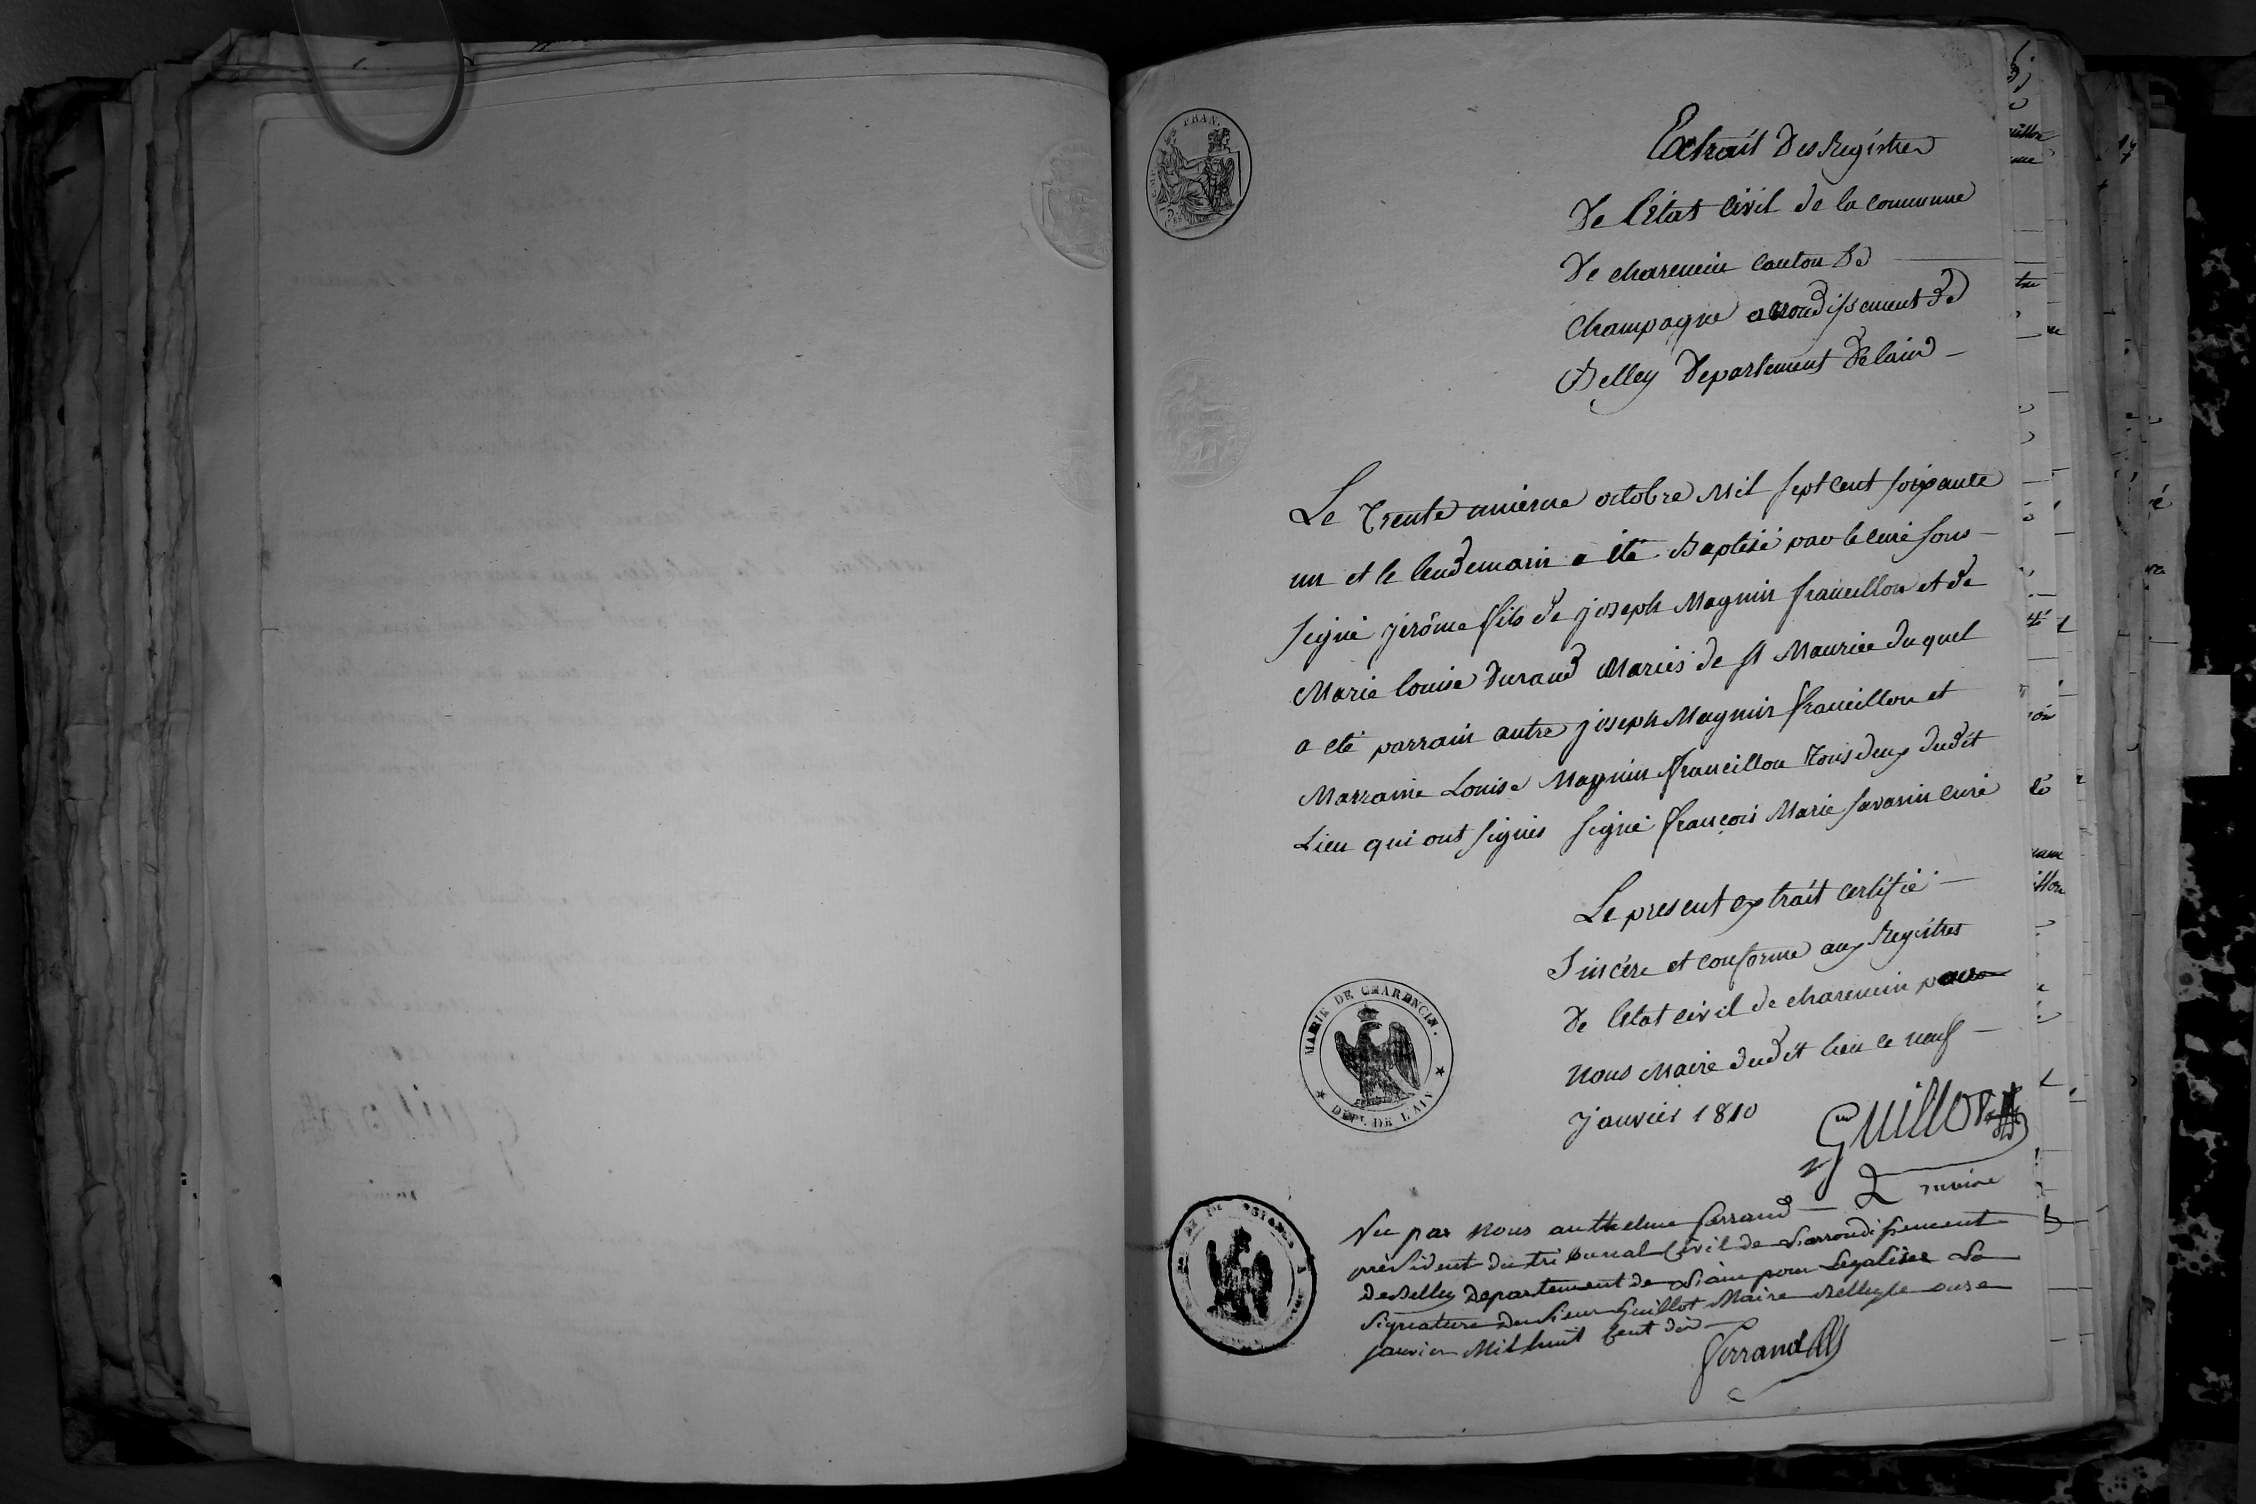 Extrait Des Registres
De l'Etat Civil de la commune
De charencin canton De
Champagne arrondissement De
Belley Departement Delain
Le Trente unieme octobre Mil sept cent soixante
un et le lendemain a été Baptisé par le curé sous
signé jerôme fils de joseph Magnin francillon et de
Marie louise Durand Mariés de st Maurice duquel
a eté parrain autre joseph Magnin francillon et
Marraine Louise Magnin francillon Tous deux dudit
Lieu qui ont signés signé françois Marie savarin curé
Le present extrait certifié
Sincère et conforme aux Registres
De l'Etat civil de charencin par
nous Maire dudit lieu ce neuf
janvier 1810
Guillot
maire
MAIRIE DE CHARENCIN.
DEPt. DE L'AIN
Vu par nous anthelme ferrand
président du tribunal Civil de L'arrondissement
De Belley Departement de L'ain pour Legaliser La
Signature du Sieur Guillot Maire Belley le onze
janvier Mil huit Cent dix
ferrand
FRAN.